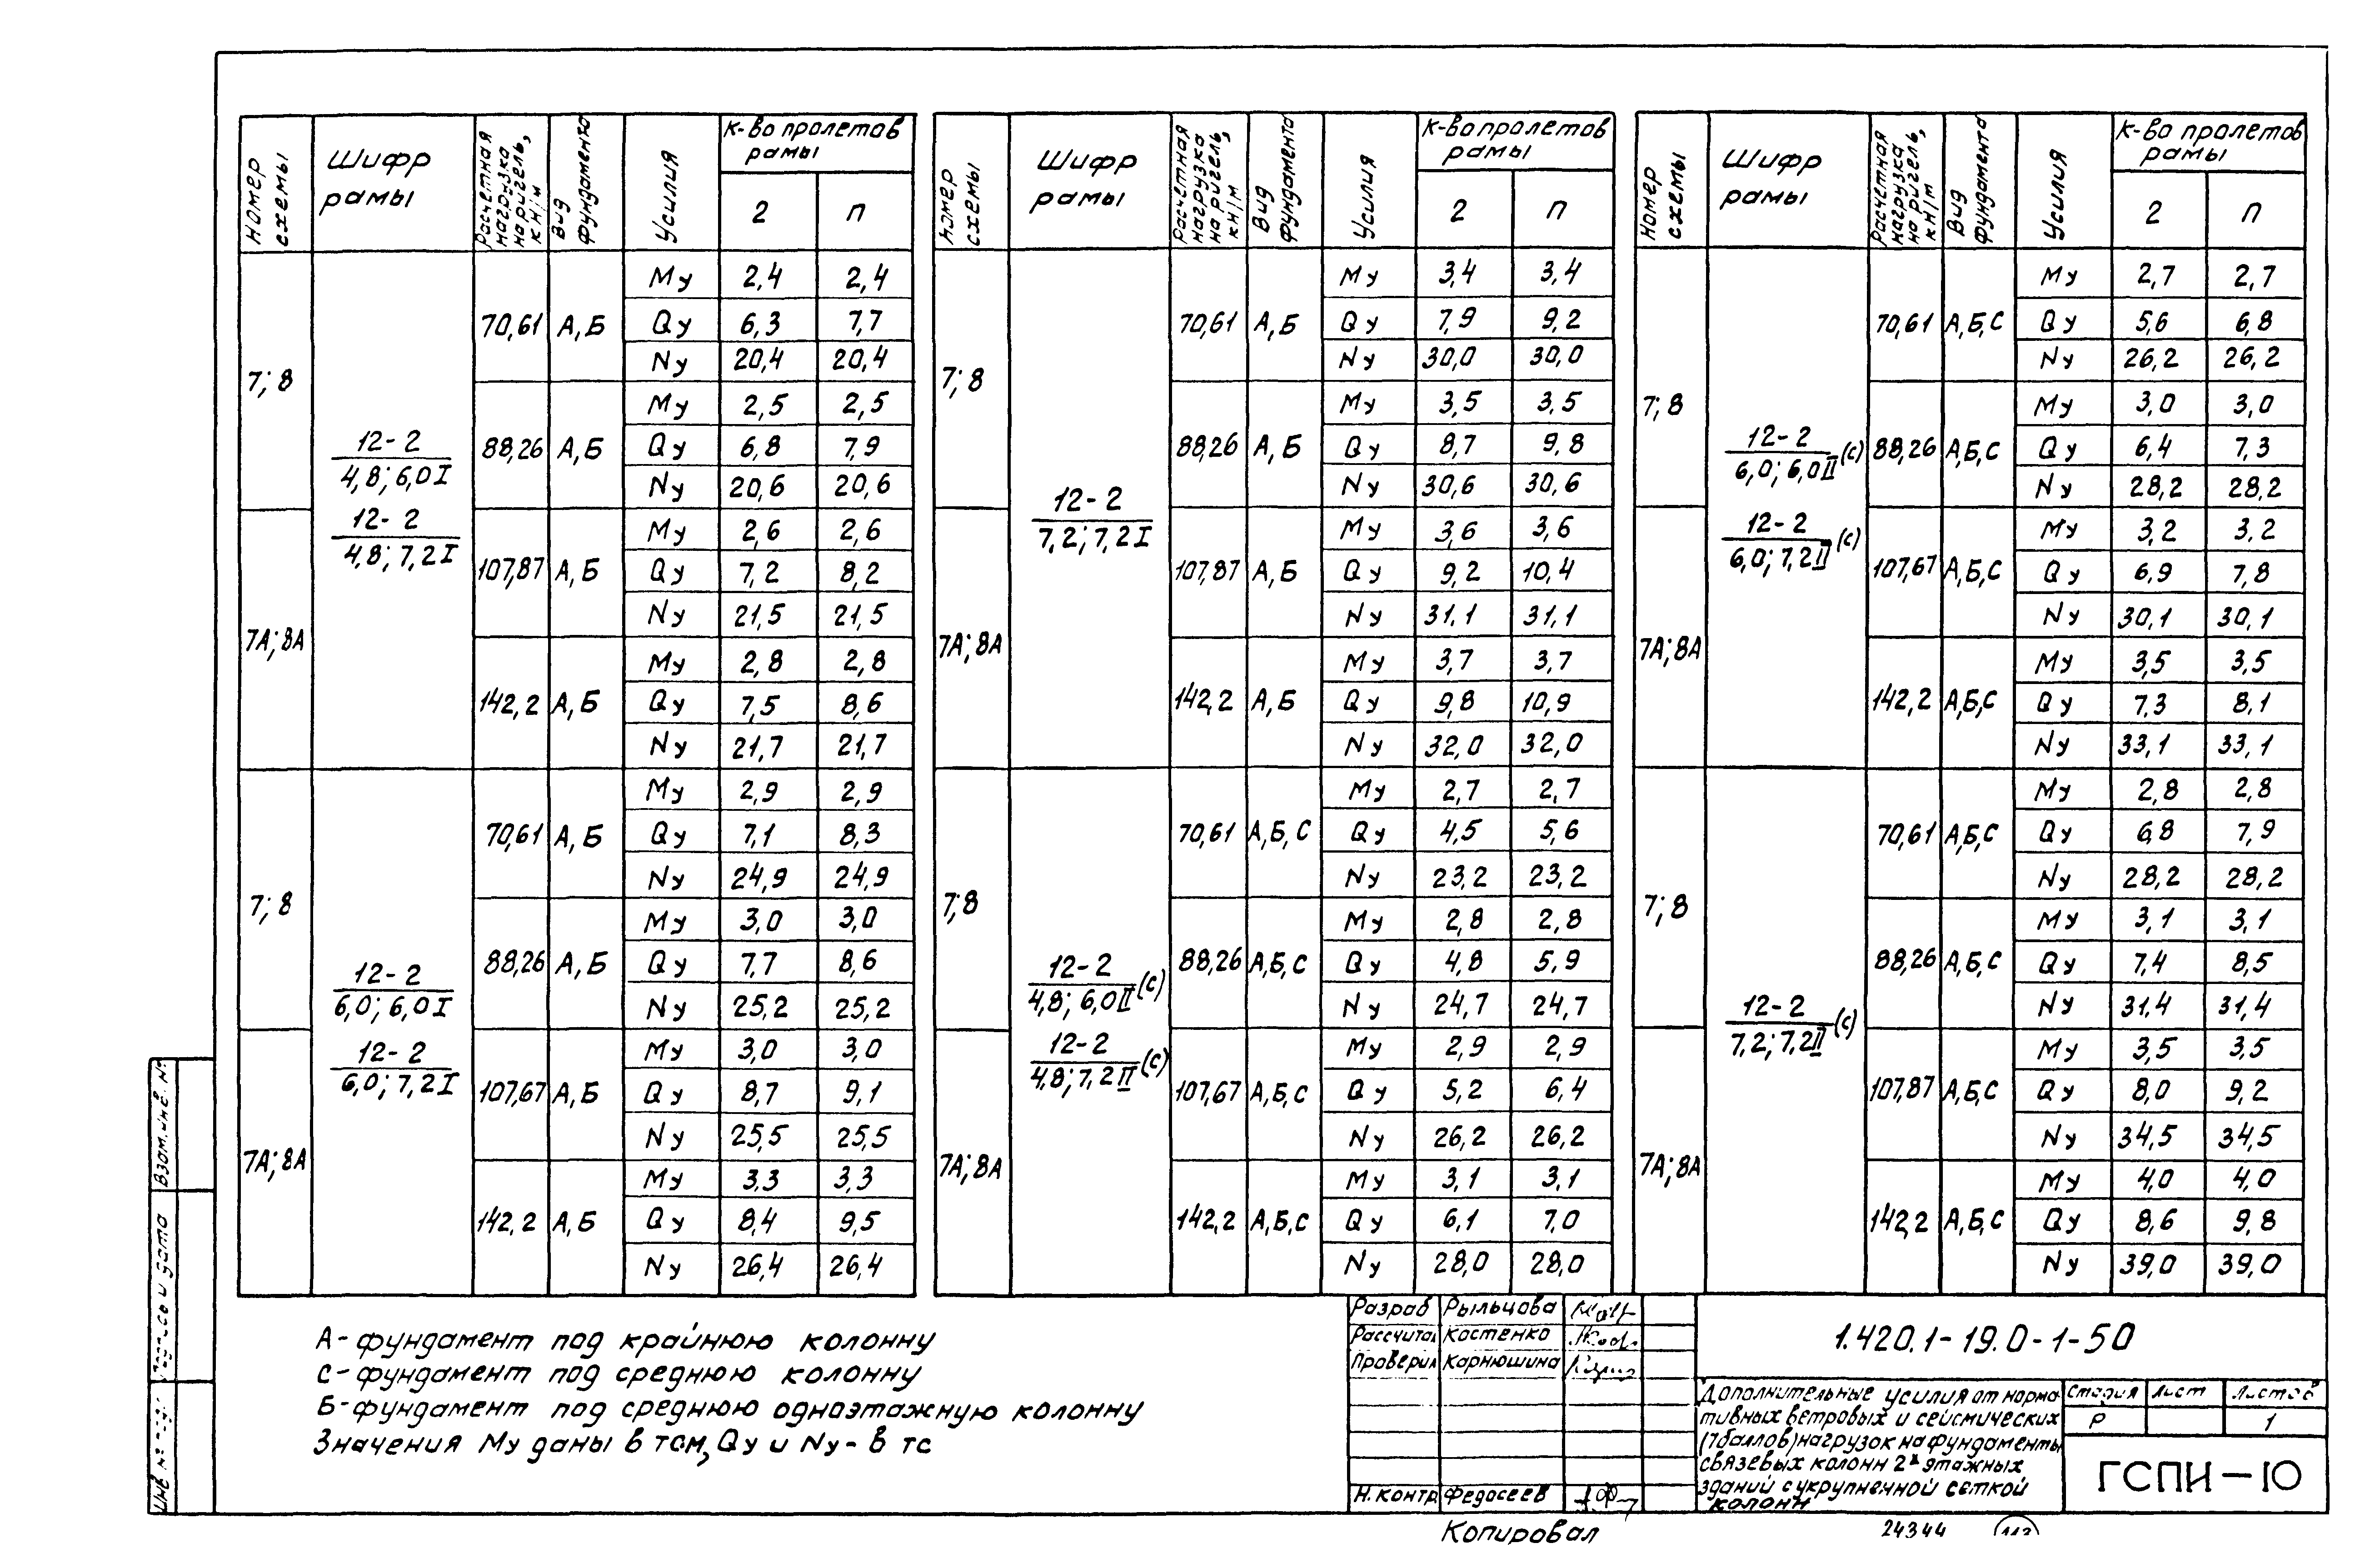 Номер схемы | Шифр рамы | Расчетная нагрузка на ригель, кН/м | Вид фундамента | Усилия | К-во пролетов рамы
2 | п
7; 8 | 12-2 / 4,8; 6,0 I | 70,61 | А, Б | Му | 2,4 | 2,4
7А; 8А | 12-2 / 4,8; 7,2 I | Qу | 6,3 | 7,7
Nу | 20,4 | 20,4
88,26 | А, Б | Му | 2,5 | 2,5
Qу | 6,8 | 7,9
Nу | 20,6 | 20,6
107,87 | А, Б | Му | 2,6 | 2,6
Qу | 7,2 | 8,2
Nу | 21,5 | 21,5
142,2 | А, Б | Му | 2,8 | 2,8
Qу | 7,5 | 8,6
Nу | 21,7 | 21,7
7; 8 | 12-2 / 6,0; 6,0 I | 70,61 | А, Б | Му | 2,9 | 2,9
7А; 8А | 12-2 / 6,0; 7,2 I | Qу | 7,1 | 8,3
Nу | 24,9 | 24,9
88,26 | А, Б | Му | 3,0 | 3,0
Qу | 7,7 | 8,6
Nу | 25,2 | 25,2
107,67 | А, Б | Му | 3,0 | 3,0
Qу | 8,7 | 9,1
Nу | 25,5 | 25,5
142,2 | А, Б | Му | 3,3 | 3,3
Qу | 8,4 | 9,5
Nу | 26,4 | 26,4
Номер схемы | Шифр рамы | Расчетная нагрузка на ригель, кН/м | Вид фундамента | Усилия | К-во пролетов рамы
2 | п
7; 8 | 12-2 / 7,2; 7,2 I | 70,61 | А, Б | Му | 3,4 | 3,4
7А; 8А | Qу | 7,9 | 9,2
Nу | 30,0 | 30,0
88,26 | А, Б | Му | 3,5 | 3,5
Qу | 8,7 | 9,8
Nу | 30,6 | 30,6
107,87 | А, Б | Му | 3,6 | 3,6
Qу | 9,2 | 10,4
Nу | 31,1 | 31,1
142,2 | А, Б | Му | 3,7 | 3,7
Qу | 9,8 | 10,9
Nу | 32,0 | 32,0
7; 8 | 12-2 / 4,8; 6,0 II (с) | 70,61 | А, Б, С | Му | 2,7 | 2,7
7А; 8А | 12-2 / 4,8; 7,2 II (с) | Qу | 4,5 | 5,6
Nу | 23,2 | 23,2
88,26 | А, Б, С | Му | 2,8 | 2,8
Qу | 4,8 | 5,9
Nу | 24,7 | 24,7
107,67 | А, Б, С | Му | 2,9 | 2,9
Qу | 5,2 | 6,4
Nу | 26,2 | 26,2
142,2 | А, Б, С | Му | 3,1 | 3,1
Qу | 6,1 | 7,0
Nу | 28,0 | 28,0
Номер схемы | Шифр рамы | Расчетная нагрузка на ригель, кН/м | Вид фундамента | Усилия | К-во пролетов рамы
2 | п
7; 8 | 12-2 / 6,0; 6,0 II (с) | 70,61 | А, Б, С | Му | 2,7 | 2,7
7А; 8А | 12-2 / 6,0; 7,2 II (с) | Qу | 5,6 | 6,8
Nу | 26,2 | 26,2
88,26 | А, Б, С | Му | 3,0 | 3,0
Qу | 6,4 | 7,3
Nу | 28,2 | 28,2
107,67 | А, Б, С | Му | 3,2 | 3,2
Qу | 6,9 | 7,8
Nу | 30,1 | 30,1
142,2 | А, Б, С | Му | 3,5 | 3,5
Qу | 7,3 | 8,1
Nу | 33,1 | 33,1
7; 8 | 12-2 / 7,2; 7,2 II (с) | 70,61 | А, Б, С | Му | 2,8 | 2,8
7А; 8А | Qу | 6,8 | 7,9
Nу | 28,2 | 28,2
88,26 | А, Б, С | Му | 3,1 | 3,1
Qу | 7,4 | 8,5
Nу | 31,4 | 31,4
107,87 | А, Б, С | Му | 3,5 | 3,5
Qу | 8,0 | 9,2
Nу | 34,5 | 34,5
142,2 | А, Б, С | Му | 4,0 | 4,0
Qу | 8,6 | 9,8
Nу | 39,0 | 39,0
А - фундамент под крайнюю колонну
С - фундамент под среднюю колонну
Б - фундамент под среднюю одноэтажную колонну
Значения Му даны в тсм, Qу и Nу - в тс
Разраб | Рыльцова
Рассчитал | Костенко
Проверил | Карнюшина
Н. контр. | Федосеев
1.420.1-19.0-1-50
Дополнительные усилия от норма
тивных ветровых и сейсмических
(7 баллов) нагрузок на фундаменты
связевых колонн 2х этажных
зданий с укрупненной сеткой
колонн
Стадия | Лист | Листов
Р | 1
ГСПИ-10
Взам. инв. №
Копировал
24344